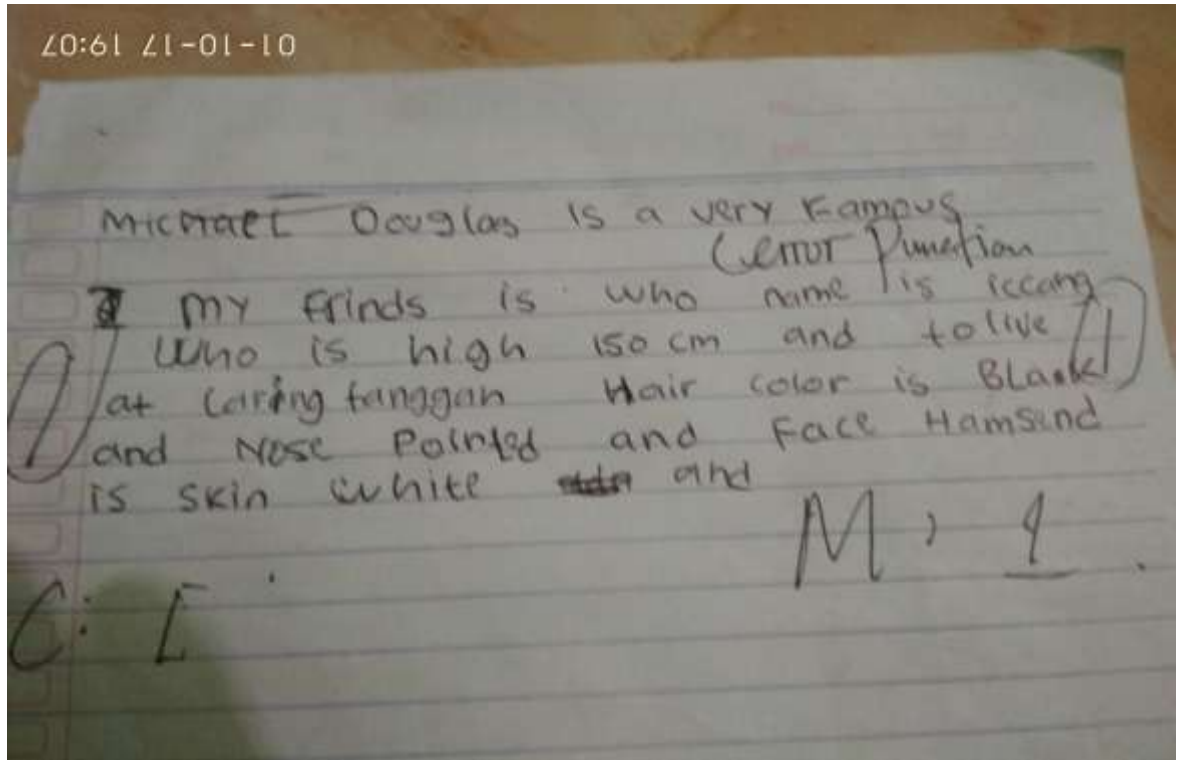 01-10-17 19:07
Michael Douglas is a very Famous
(error Punction
my Frinds is who name is iccang
Who is high 150 cm and to live
at Caring tanggan Hair color is Blask
and Nose Pointed and Face Hamsend
is skin white and
M : 1
C : [